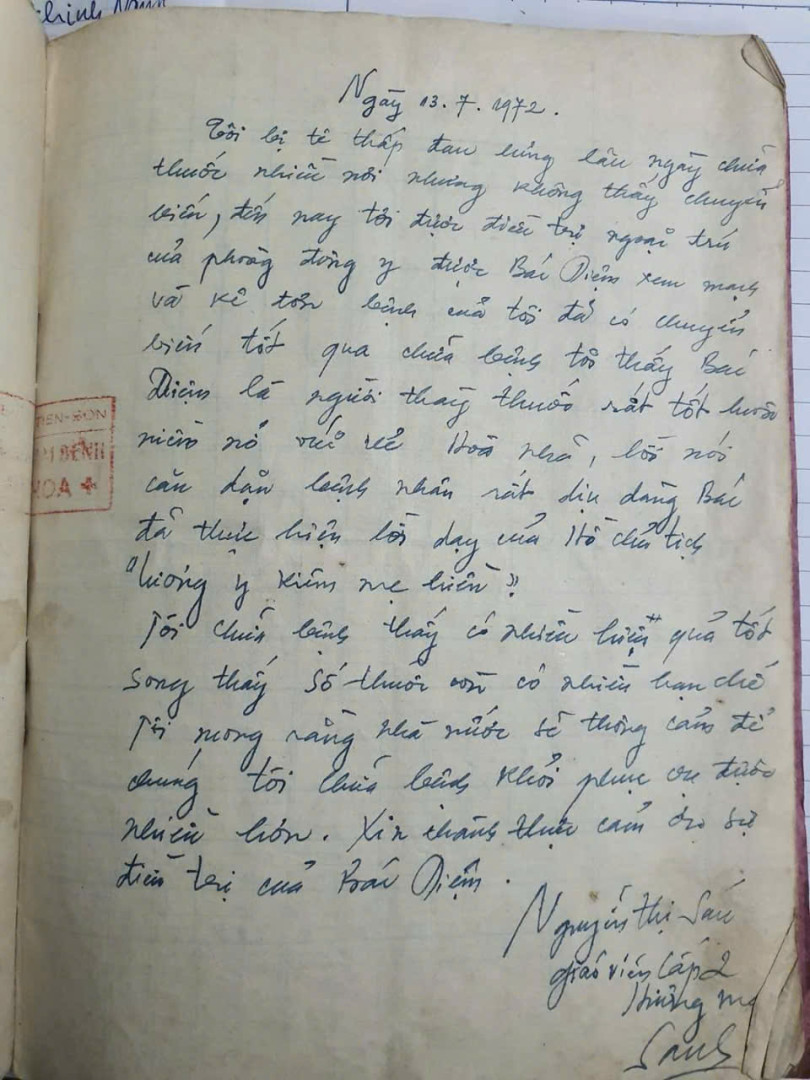 Ngày 13.7.1972.
Tôi bị tê thấp đau lưng lâu ngày chữa
thuốc nhiều nơi nhưng không thấy chuyển
biến, đến nay tôi được điều trị ngoại trú
của phòng đông y được Bác Diệm xem mạch
và kê đơn bệnh của tôi đã có chuyển
biến tốt qua chữa bệnh tôi thấy Bác
Diệm là người thày thuốc rất tốt luôn
niềm nở vui vẻ Hoà nhã, lời nói
căn dặn bệnh nhân rất dịu dàng Bác
đã thực hiện lời dạy của Hồ chủ tịch
"lương y kiêm mẹ hiền"
Tôi chữa bệnh thấy có nhiều hiệu quả tốt
song thấy số thuốc còn có nhiều hạn chế
Tôi mong rằng nhà nước sẽ thông cảm để
chúng tôi chữa bệnh khỏi phục vụ được
nhiều hơn. Xin thành thực cảm ơn sự
điều trị của Bác Diệm.
Nguyễn Thị Sáu
giáo viên Cấp 2
TIÊN-SƠN
BỆNH
KHOA